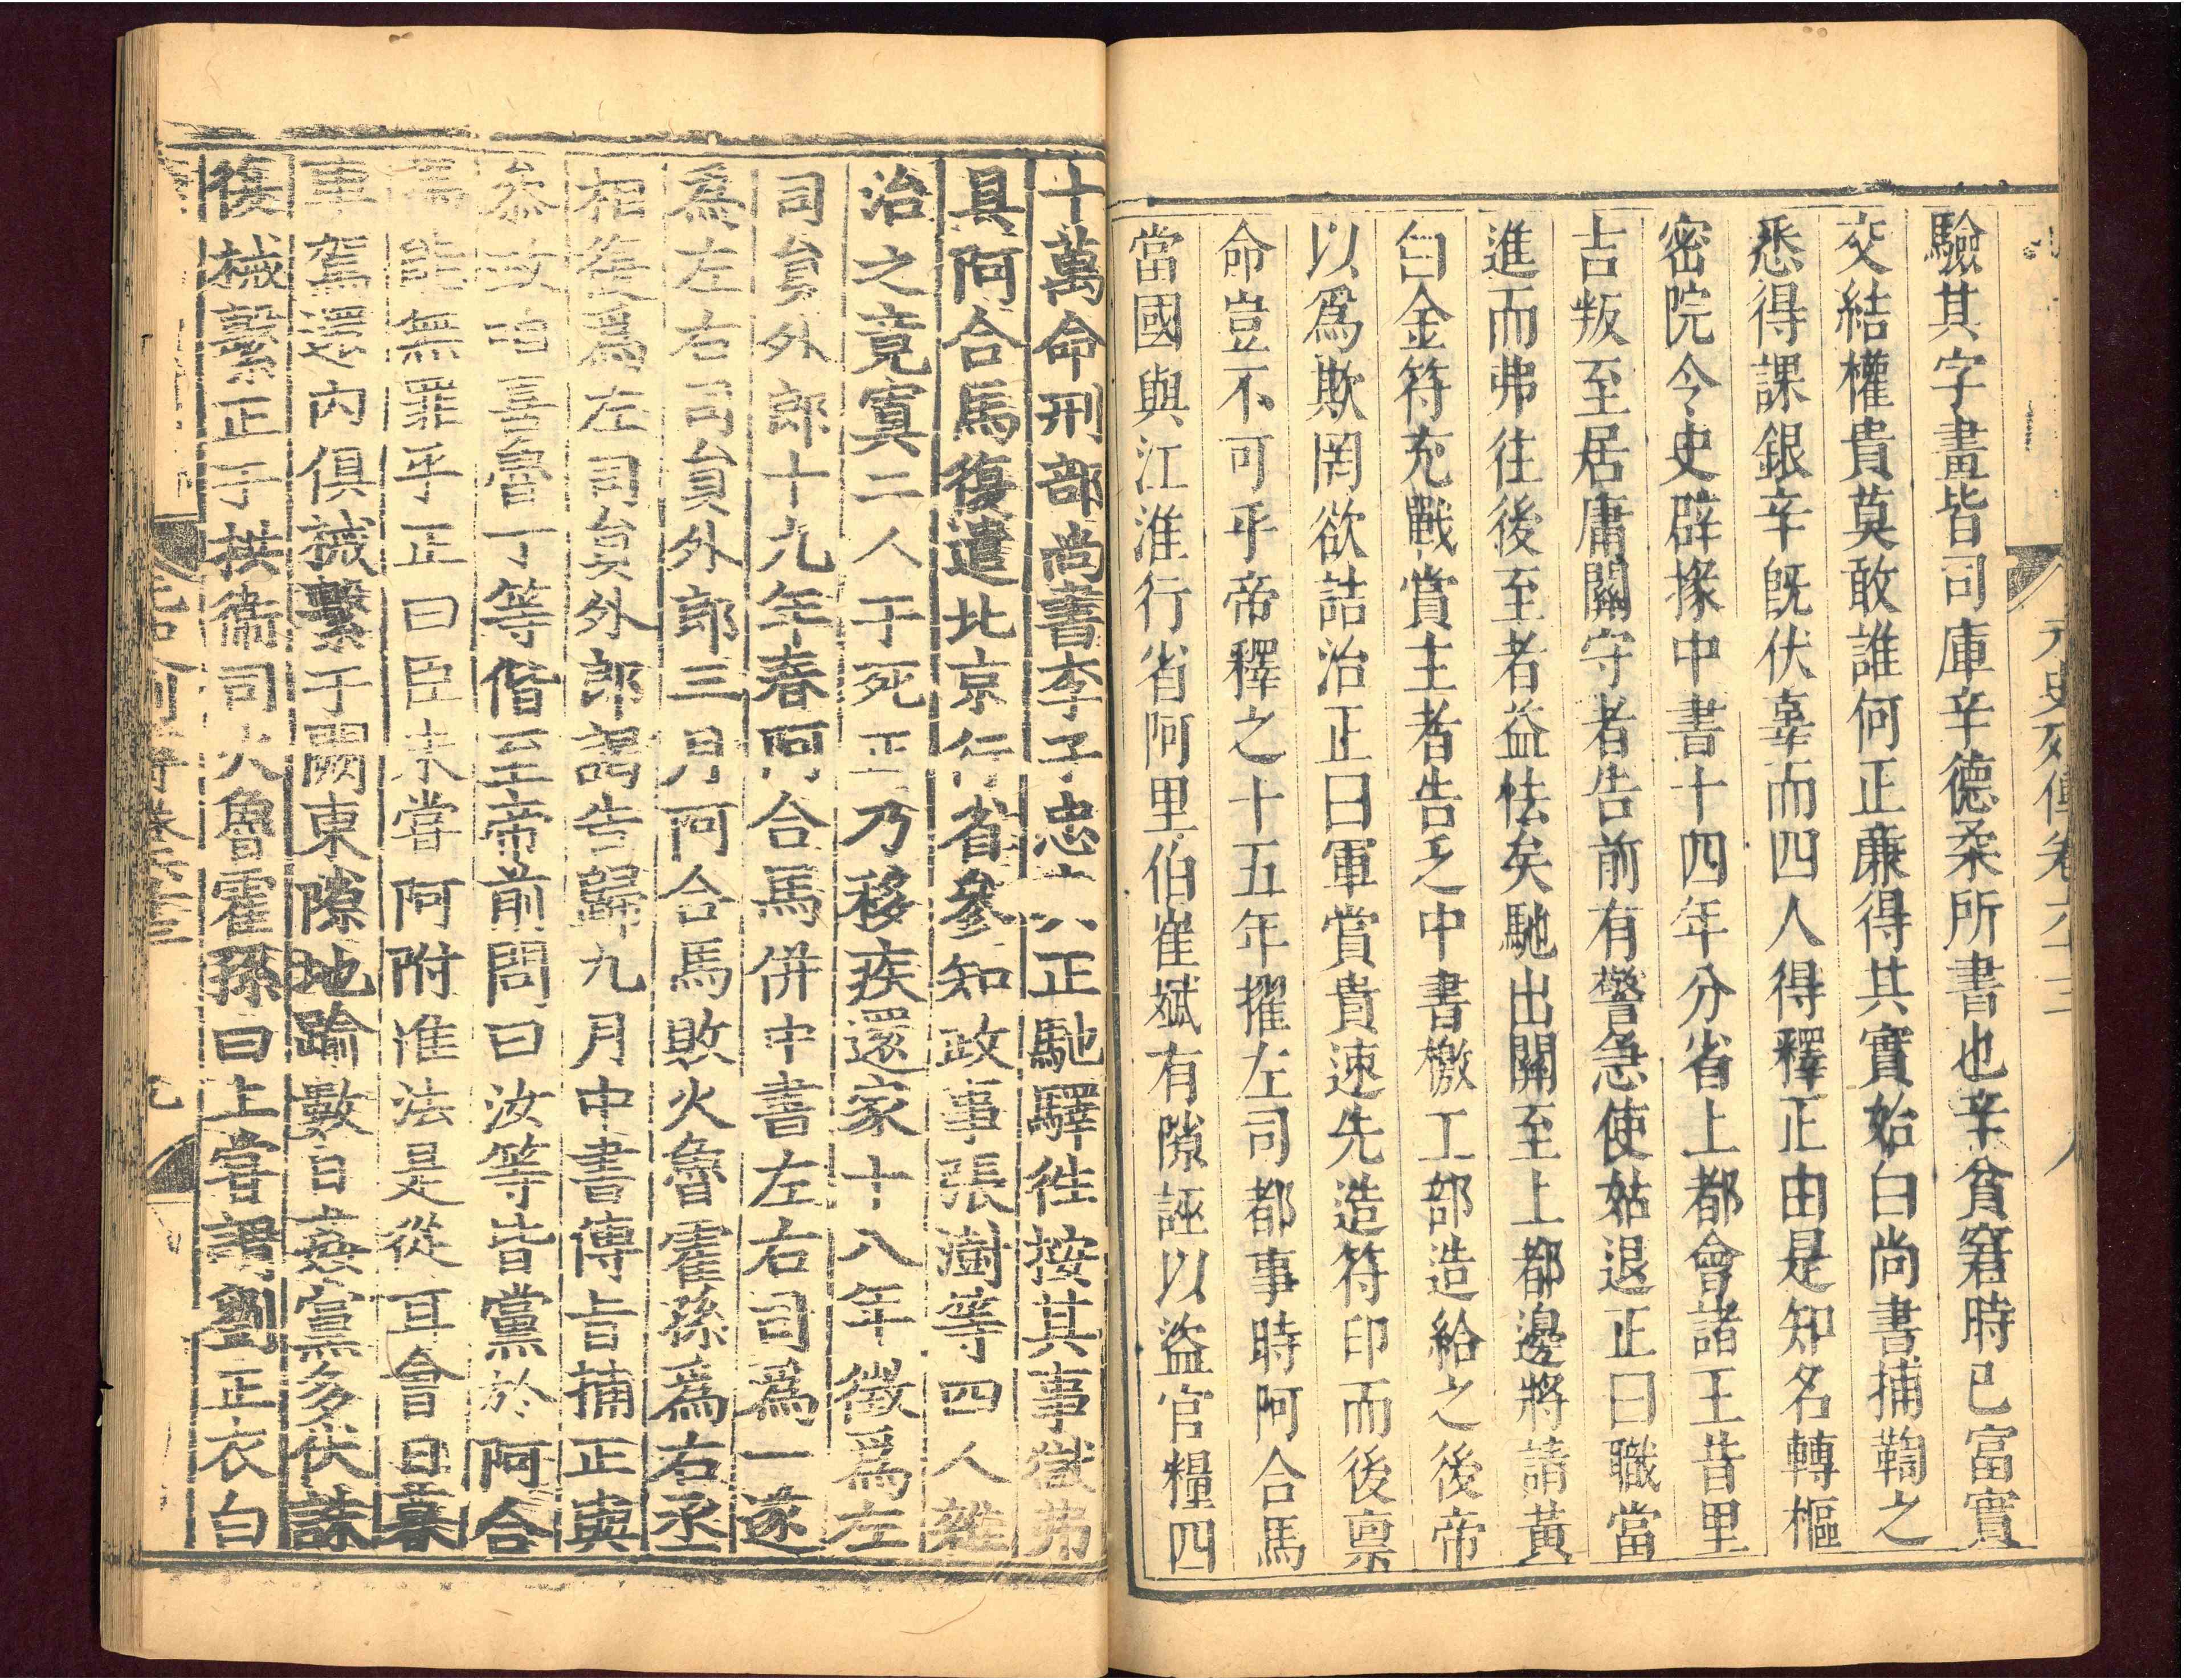 元史列傳卷六十三 八
驗其字畫皆司庫辛德柔所書也辛貧窘時已富實
交結權貴莫敢誰何正廉得其實始白尚書捕鞫之
悉得課銀辛旣伏辜而四人得釋正由是知名轉樞
密院令史辟掾中書十四年分省上都會諸王昔里
吉叛至居庸關守者告前有警急使姑退正曰職當
進而弗往後至者益怯矣馳出關至上都邊將請黃
白金符充戰賞主者告乏中書檄工部造給之後帝
以爲欺罔欲詰治正曰軍賞貴速先造符印而後禀
命豈不可乎帝釋之十五年擢左司都事時阿合馬
當國與江淮行省阿里伯崔斌有隙誣以盜官糧四
十萬命刑部尚書李子忠六正馳驛徃按其事獄弗
具阿合馬復遣北京行省參知政事張澍等四人雜
治之竟寘二人于死正乃移疾還家十八年徵爲左
司貟外郎十九年春阿合馬併中書左右司爲一遂
爲左右司貟外郎三月阿合馬敗火魯霍孫爲右丞
相復爲左司貟外郎謁告歸九月中書傳旨捕正與
叅政咱喜魯丁等偕至帝前問曰汝等皆黨於阿合
馬能無罪乎正曰臣未嘗阿附惟法是從耳會日暮
車駕還內俱械繫于闕東隙地踰數日姦黨多伏誅
復械繫正于拱衛司火魯霍孫曰上嘗謂劉正衣白
九